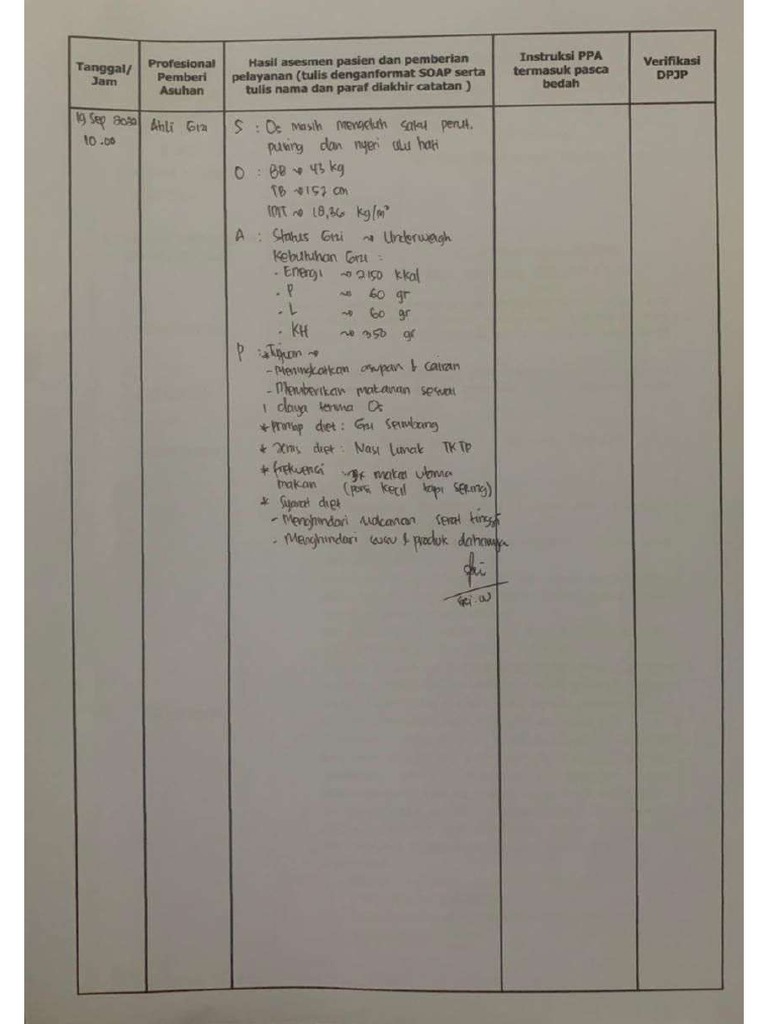 Tanggal/
Jam
Profesional
Pemberi
Asuhan
Hasil asesmen pasien dan pemberian
pelayanan (tulis denganformat SOAP serta
tulis nama dan paraf diakhir catatan )
Instruksi PPA
termasuk pasca
bedah
Verifikasi
DPJP
19 Sep 2020
10.00
Ahli Gizi
S : Os masih mengeluh sakit perut,
pusing dan nyeri ulu hati
O : BB → 43 kg
TB → 153 cm
IMT → 18,36 kg/m²
A : Status Gizi → Underweigh
Kebutuhan Gizi :
- Energi → 2150 kkal
- P → 60 gr
- L → 60 gr
- KH → 350 gr
P : * Tujuan →
- Meningkatkan asupan & cairan
- Memberikan makanan sesuai
daya terima Os
* Prinsip diet : Gizi Seimbang
* Jenis diet : Nasi Lunak TKTP
* Frekuensi → 3x makan utama
makan (porsi kecil tapi sering)
* Syarat diet
- Menghindari makanan serat tinggi
- Menghindari susu & produk